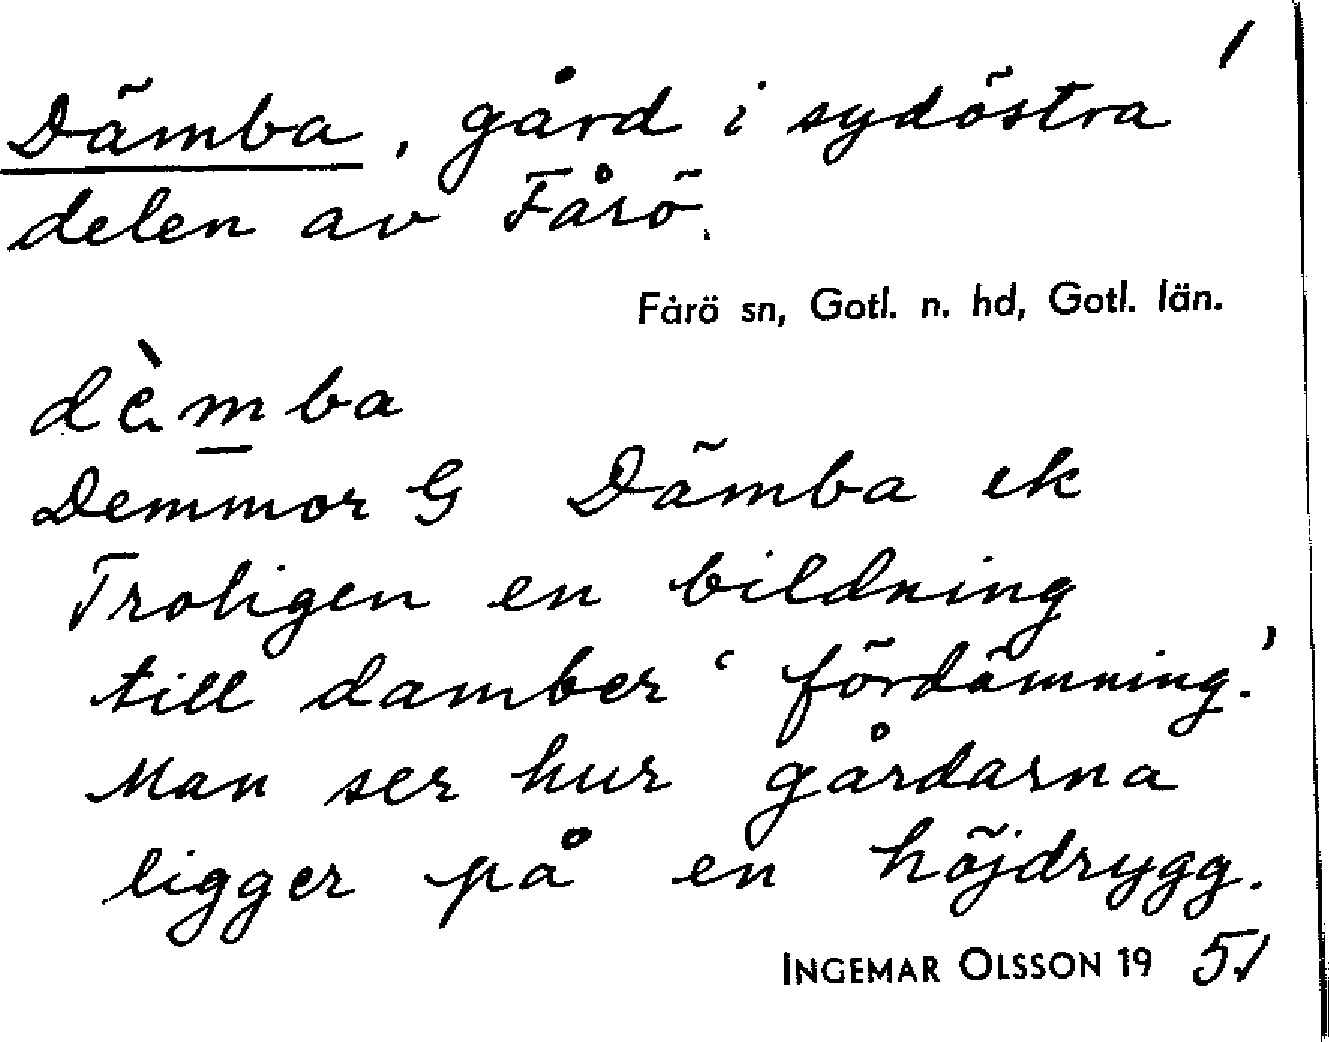 1
Dämba, gård i sydöstra
delen av Fårö.
Fårö sn, Gotl. n. hd, Gotl. län.
dèm̲ba
Demmor G Dämba ek
Troligen en bildning
till damber 'fördämning.'
Man ser hur gårdarna
ligger på en höjdrygg.
INGEMAR OLSSON 19 51